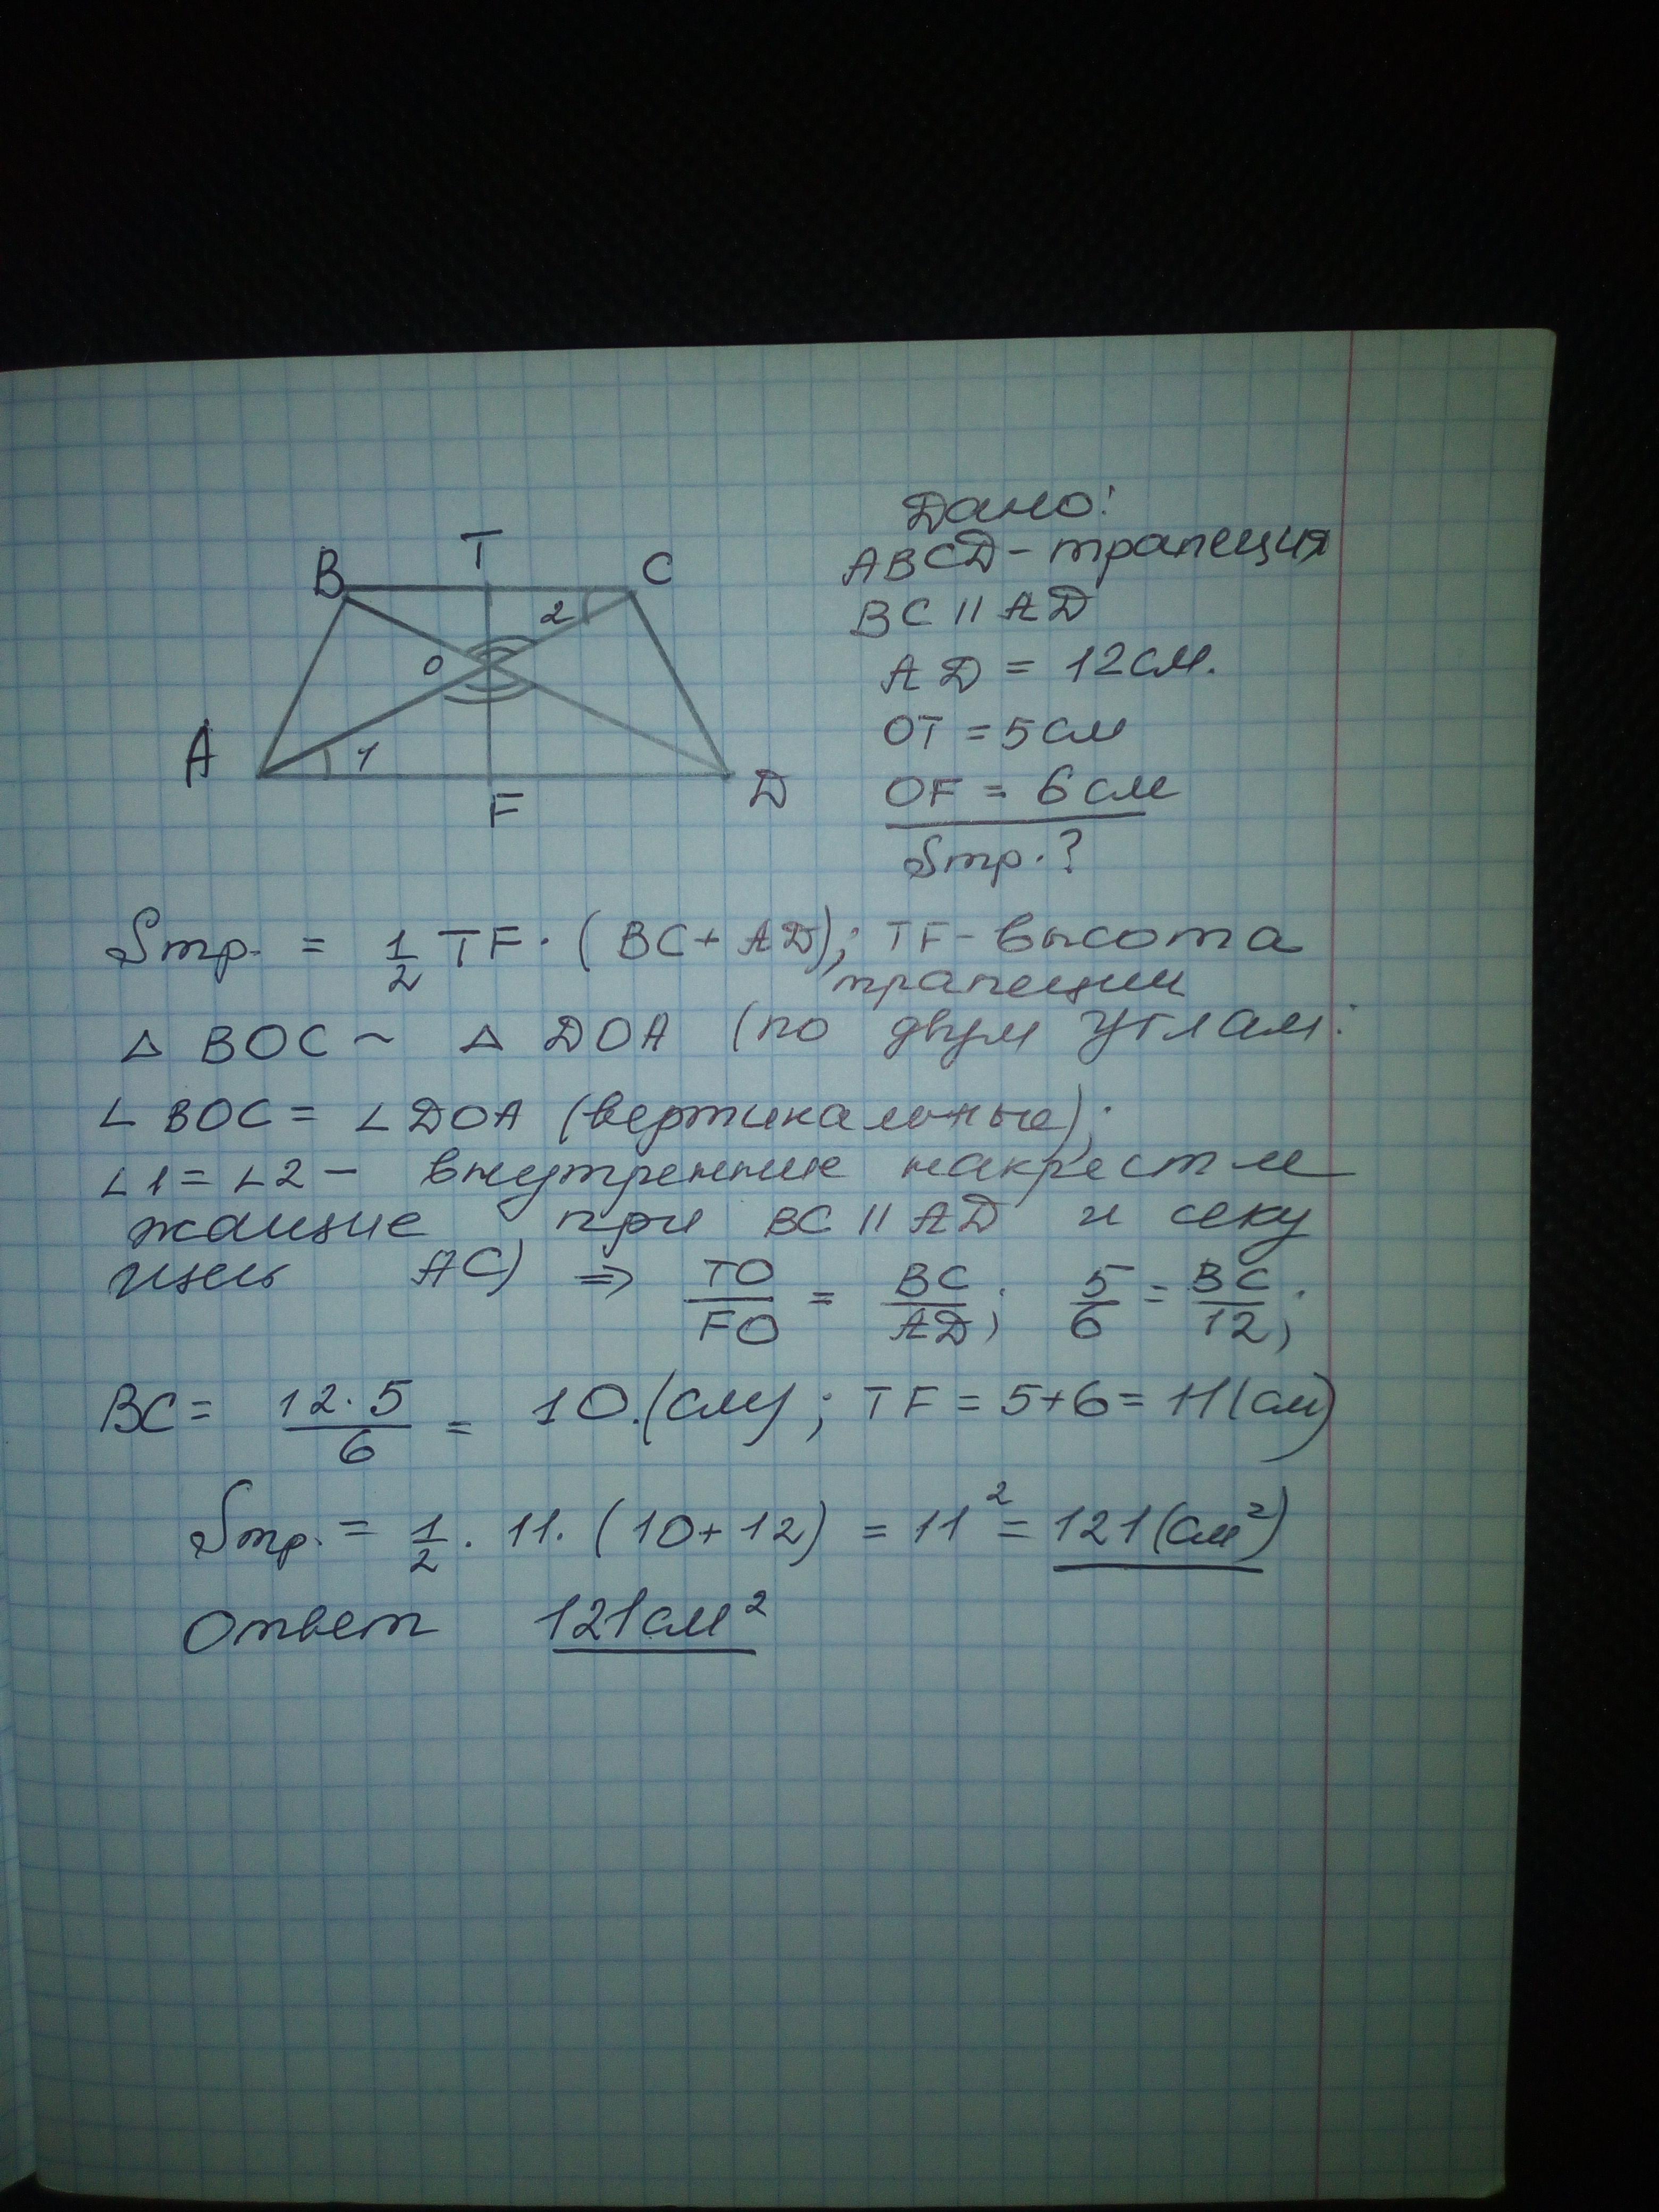 T
B
C
2
O
A
1
F
D
Дано:
ABCD - трапеция
BC || AD
AD = 12 см.
OT = 5 см
OF = 6 см
Sтр. ?
Sтр. = 1/2 TF · (BC + AD); TF - высота
трапеции
△ BOC ~ △ DOA (по двум углам:
∠ BOC = ∠ DOA (вертикальные);
∠1 = ∠2 - внутренние накрестле
жащие при BC || AD и секу
щей AC) ⇒ TO/FO = BC/AD; 5/6 = BC/12;
BC = 12·5/6 = 10.(см); TF = 5+6 = 11(см)
Sтр. = 1/2 · 11. (10+12) = 11² = 121(см²)
Ответ 121 см²